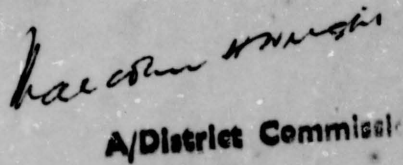 Malcolm
A/District Commissi